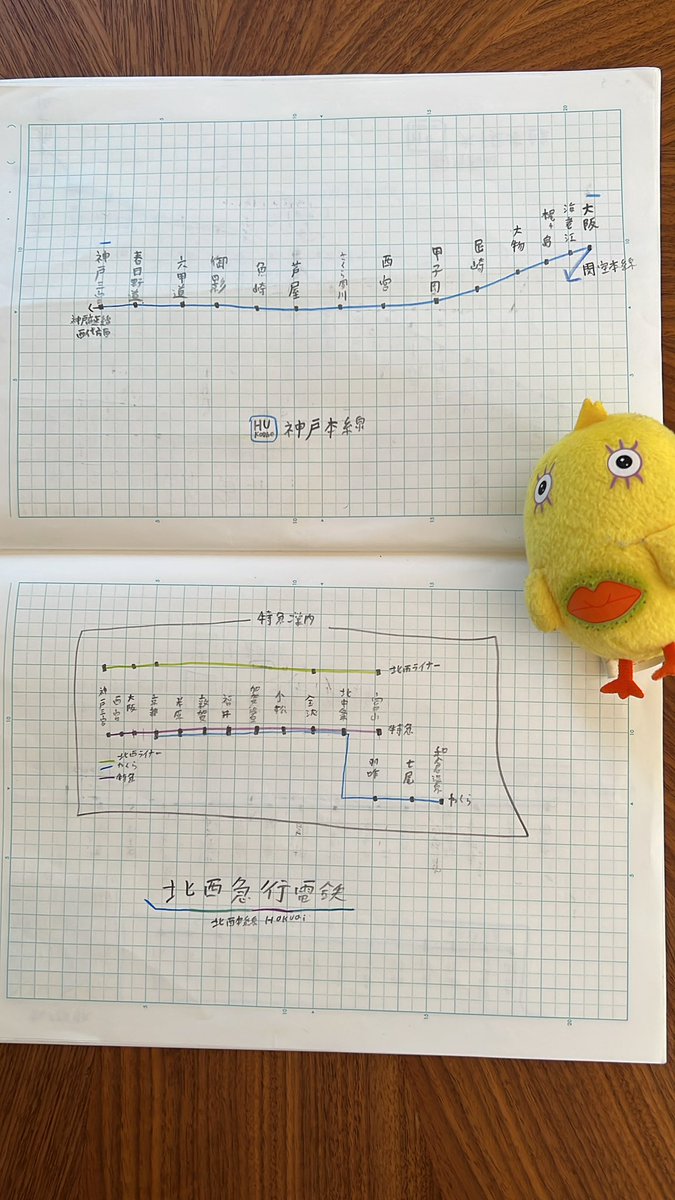 神戸三宮
春日野道
六甲道
御影
魚崎
芦屋
さくら夙川
西宮
甲子园
尼崎
大物
大阪
神戸高速線
西代方面
HU
神戸本線
特急ご案内
北西ライナー
神戸三宮
西宮
大阪
京都
敦賀
福井
加賀温泉
小松
金沢
北中条
富山
特急
羽咋
七尾
和倉温泉
わくら
北西ライナー
わくら
特急
北西急行電鉄
北西本線 HOKUSAI